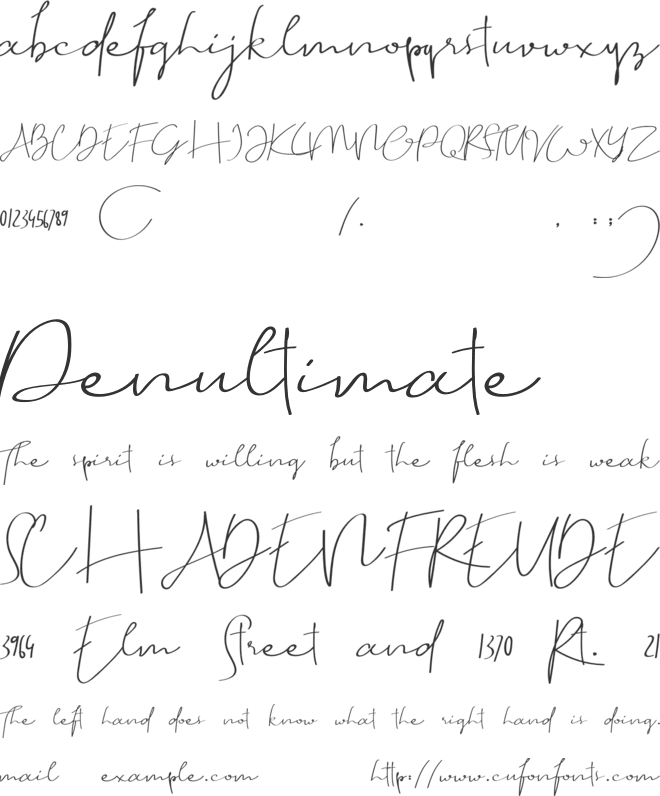 abcdefghijklmnopqrstuvwxyz
ABCDEFGHIJKLMNOPQRSTUVWXYZ
0123456789 ( / . , : ; )
Penultimate
The spirit is willing but the flesh is weak
SCHADENFREUDE
3964 Elm Street and 1370 Rt. 21
The left hand does not know what the right hand is doing.
mail example.com http://www.cufonfonts.com